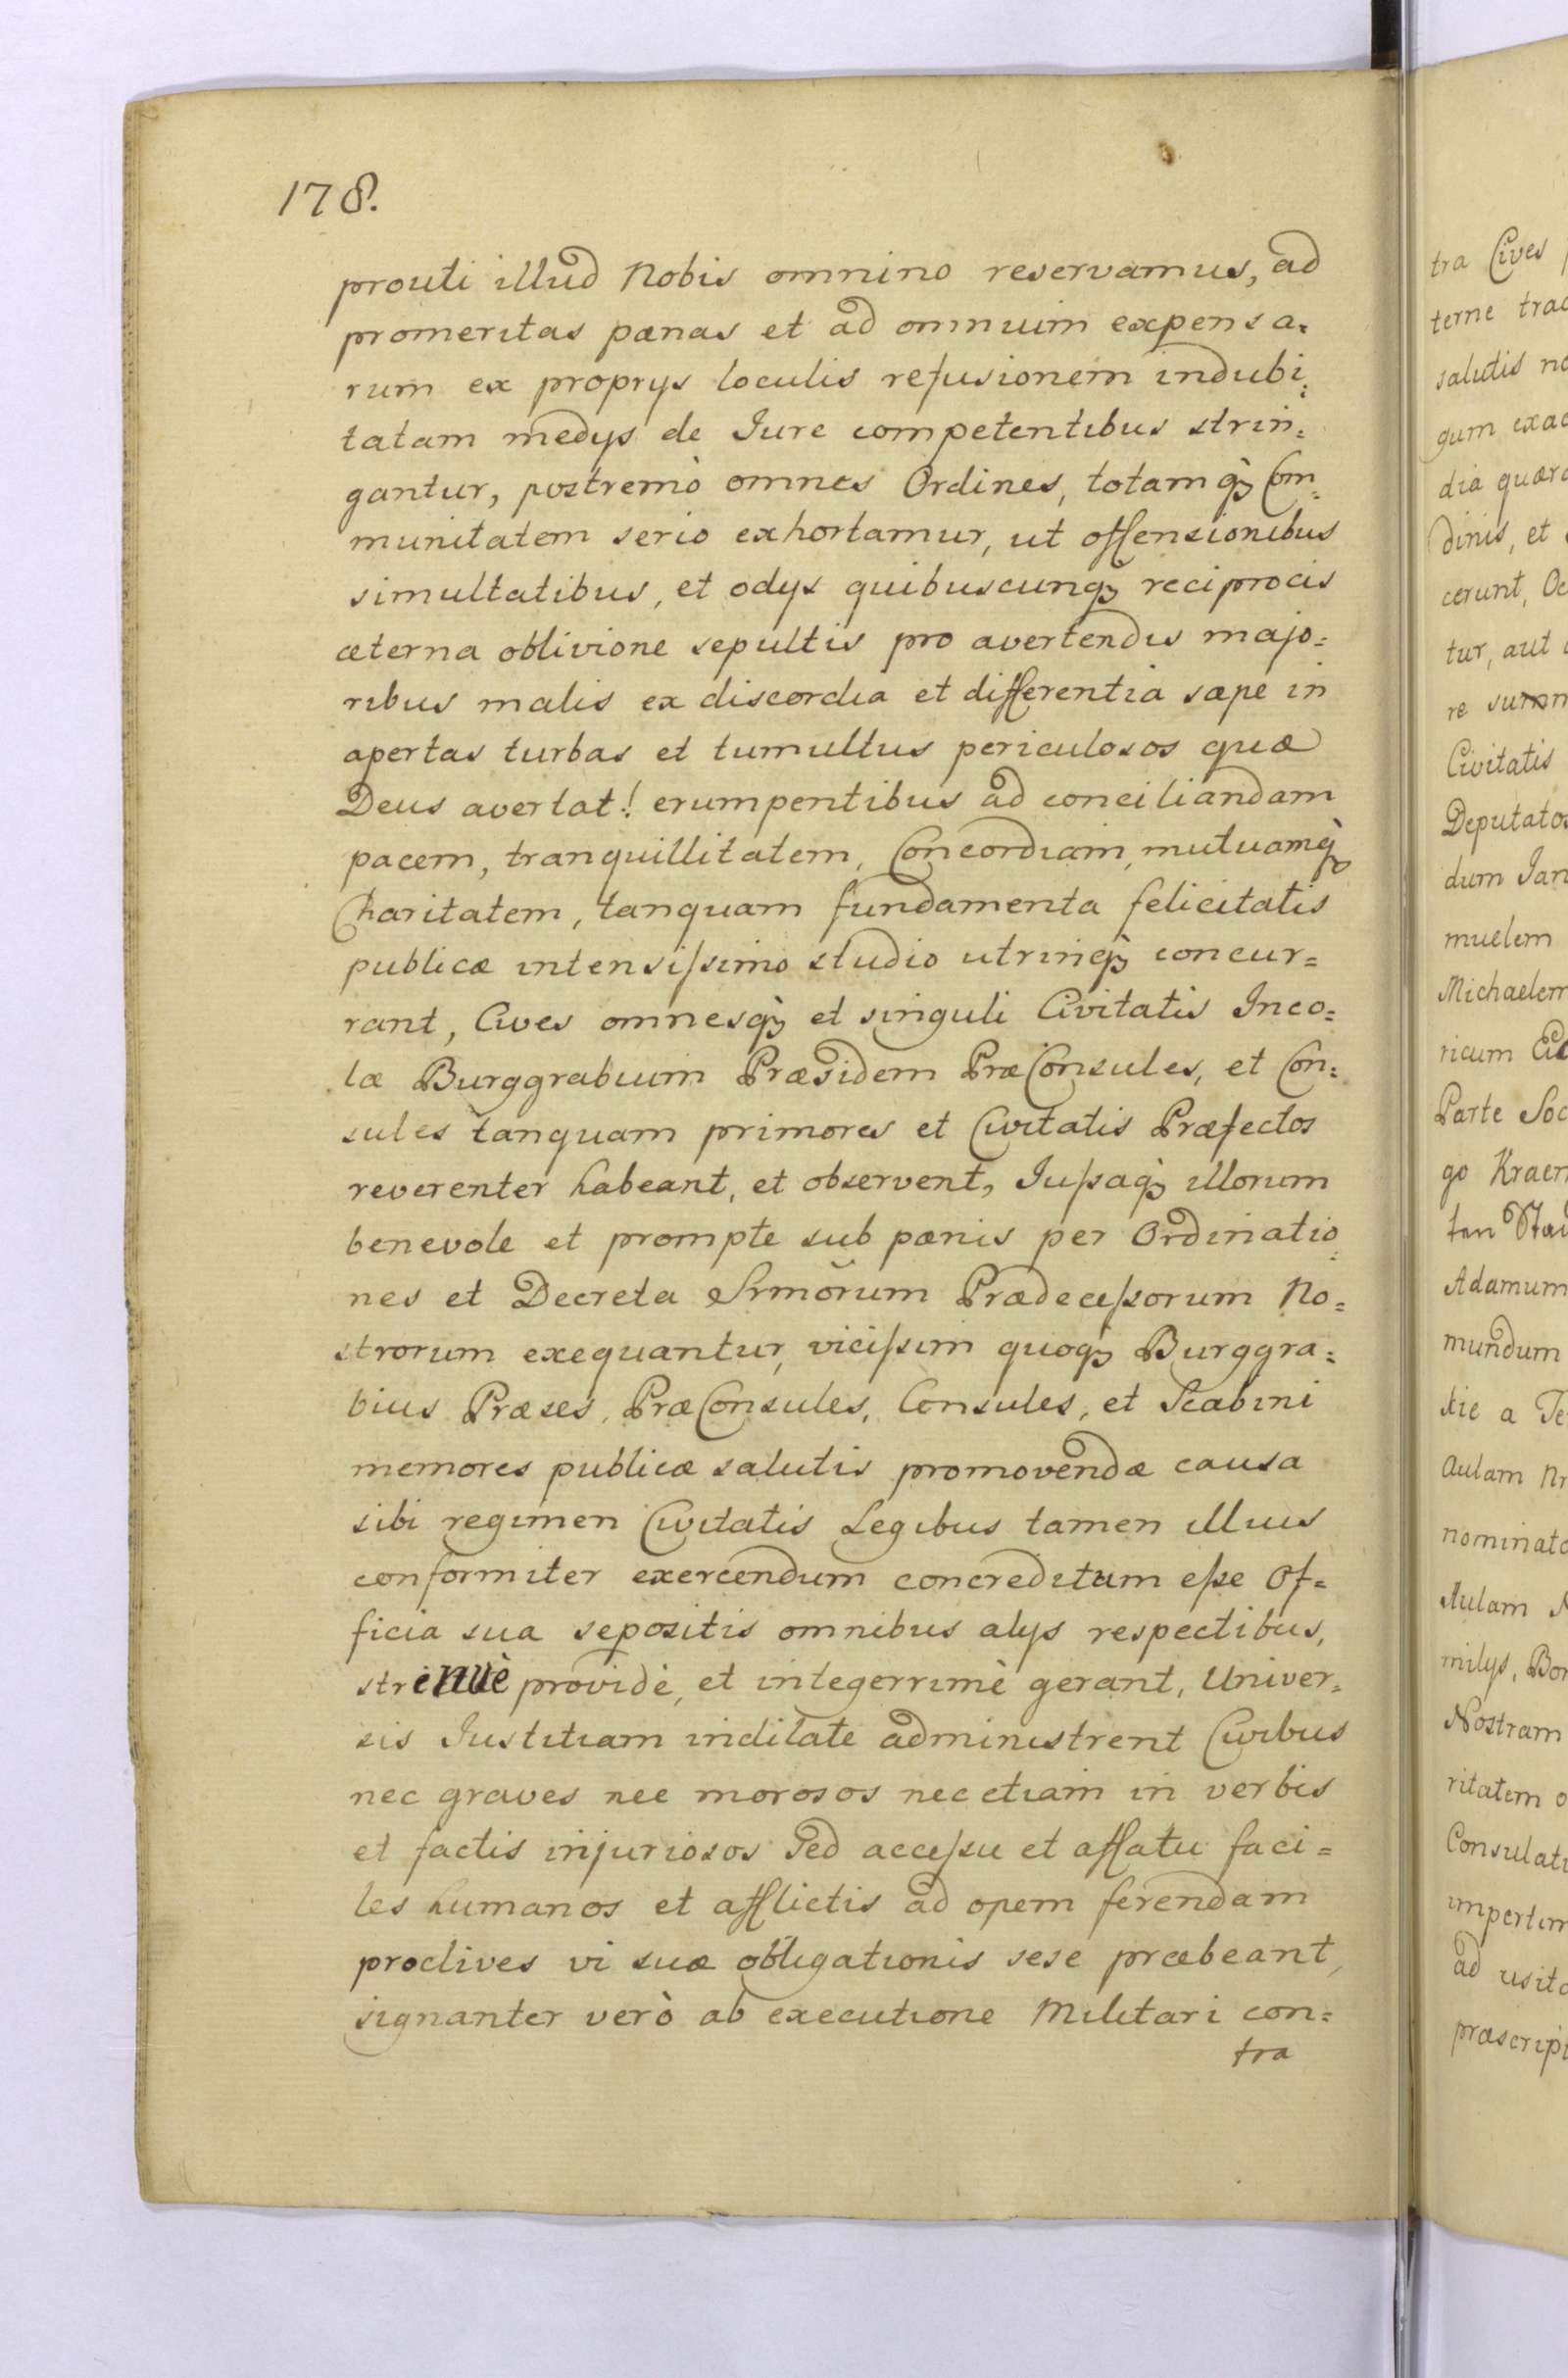 178.
prouti illud Nobis omnino reservamus, ad
promeritas pænas et ad omnium expensa=
rum ex proprys loculis refusionem indubi=
tatam medys de Iure competentibus strin=
gantur, postremò omnes Ordines, totamq̀ꝫ Com=
munitatem serio exhortamur, ut offensionibus
simultatibus, et odys quibuscunqꝫ reciprocis
æterna oblivione sepultis pro avertendis majo=
ribus malis ex discordia et differentia sæpe in
apertas turbas et tumultus periculosos quæ
Deus avertat! erumpentibus ad conciliandam
pacem, tranquillitatem, Concordiam, mutuamq̀ꝫ
Charitatem, tanquam fundamenta felicitatis
publicæ intensiſsimo studio utrinq̀ꝫ concur=
rant, Cives omnesq̀ꝫ et singuli Civitatis Inco=
læ Burggrabium Præsidem PræConsules, et Con=
sules tanquam primores et Civitatis Præfectos
reverenter habeant, et observent, Iuſsaq̀ꝫ illorum
benevole et prompte sub pænis per Ordinatio=
nes et Decreta Srmõrum Prædeceſsorum No=
strorum exequantur, viciſsim quoqꝫ Burggra=
bius Præses, PræConsules, Consules, et Scabini
memores publicæ salutis promovendæ causa
sibi regimen Civitatis Legibus tamen illius
conformiter exercendum concreditum eſse Of=
ficia sua sepositis omnibus alys respectibus,
strenuè providè, et integerrimè gerant, Univer=
sis Iustitiam indilate administrent Civibus
nec graves nec morosos nec etiam in verbis
et factis injuriosos Sed acceſsu et affatu faci=
les humanos et afflictis ad opem ferendam
proclives vi suæ obligationis sese præbeant,
signanter verò ab executione Militari con=
tra
tra Cives
terne trac
salutis no
gum exac
dia quær
dinis, et
cerunt, Oc
tur, aut
re summ
Civitatis
Deputatos
dum Jan
muelem
Michaelem
ricum
Parte Soc
go Kraem
ten Stad
Adamum
mundum
xie a Te
Aulam Nr
nominato
Aulam N
milys, Bon
Nostram
ritatem o
Consulatu
impertim
ad usita
præscript